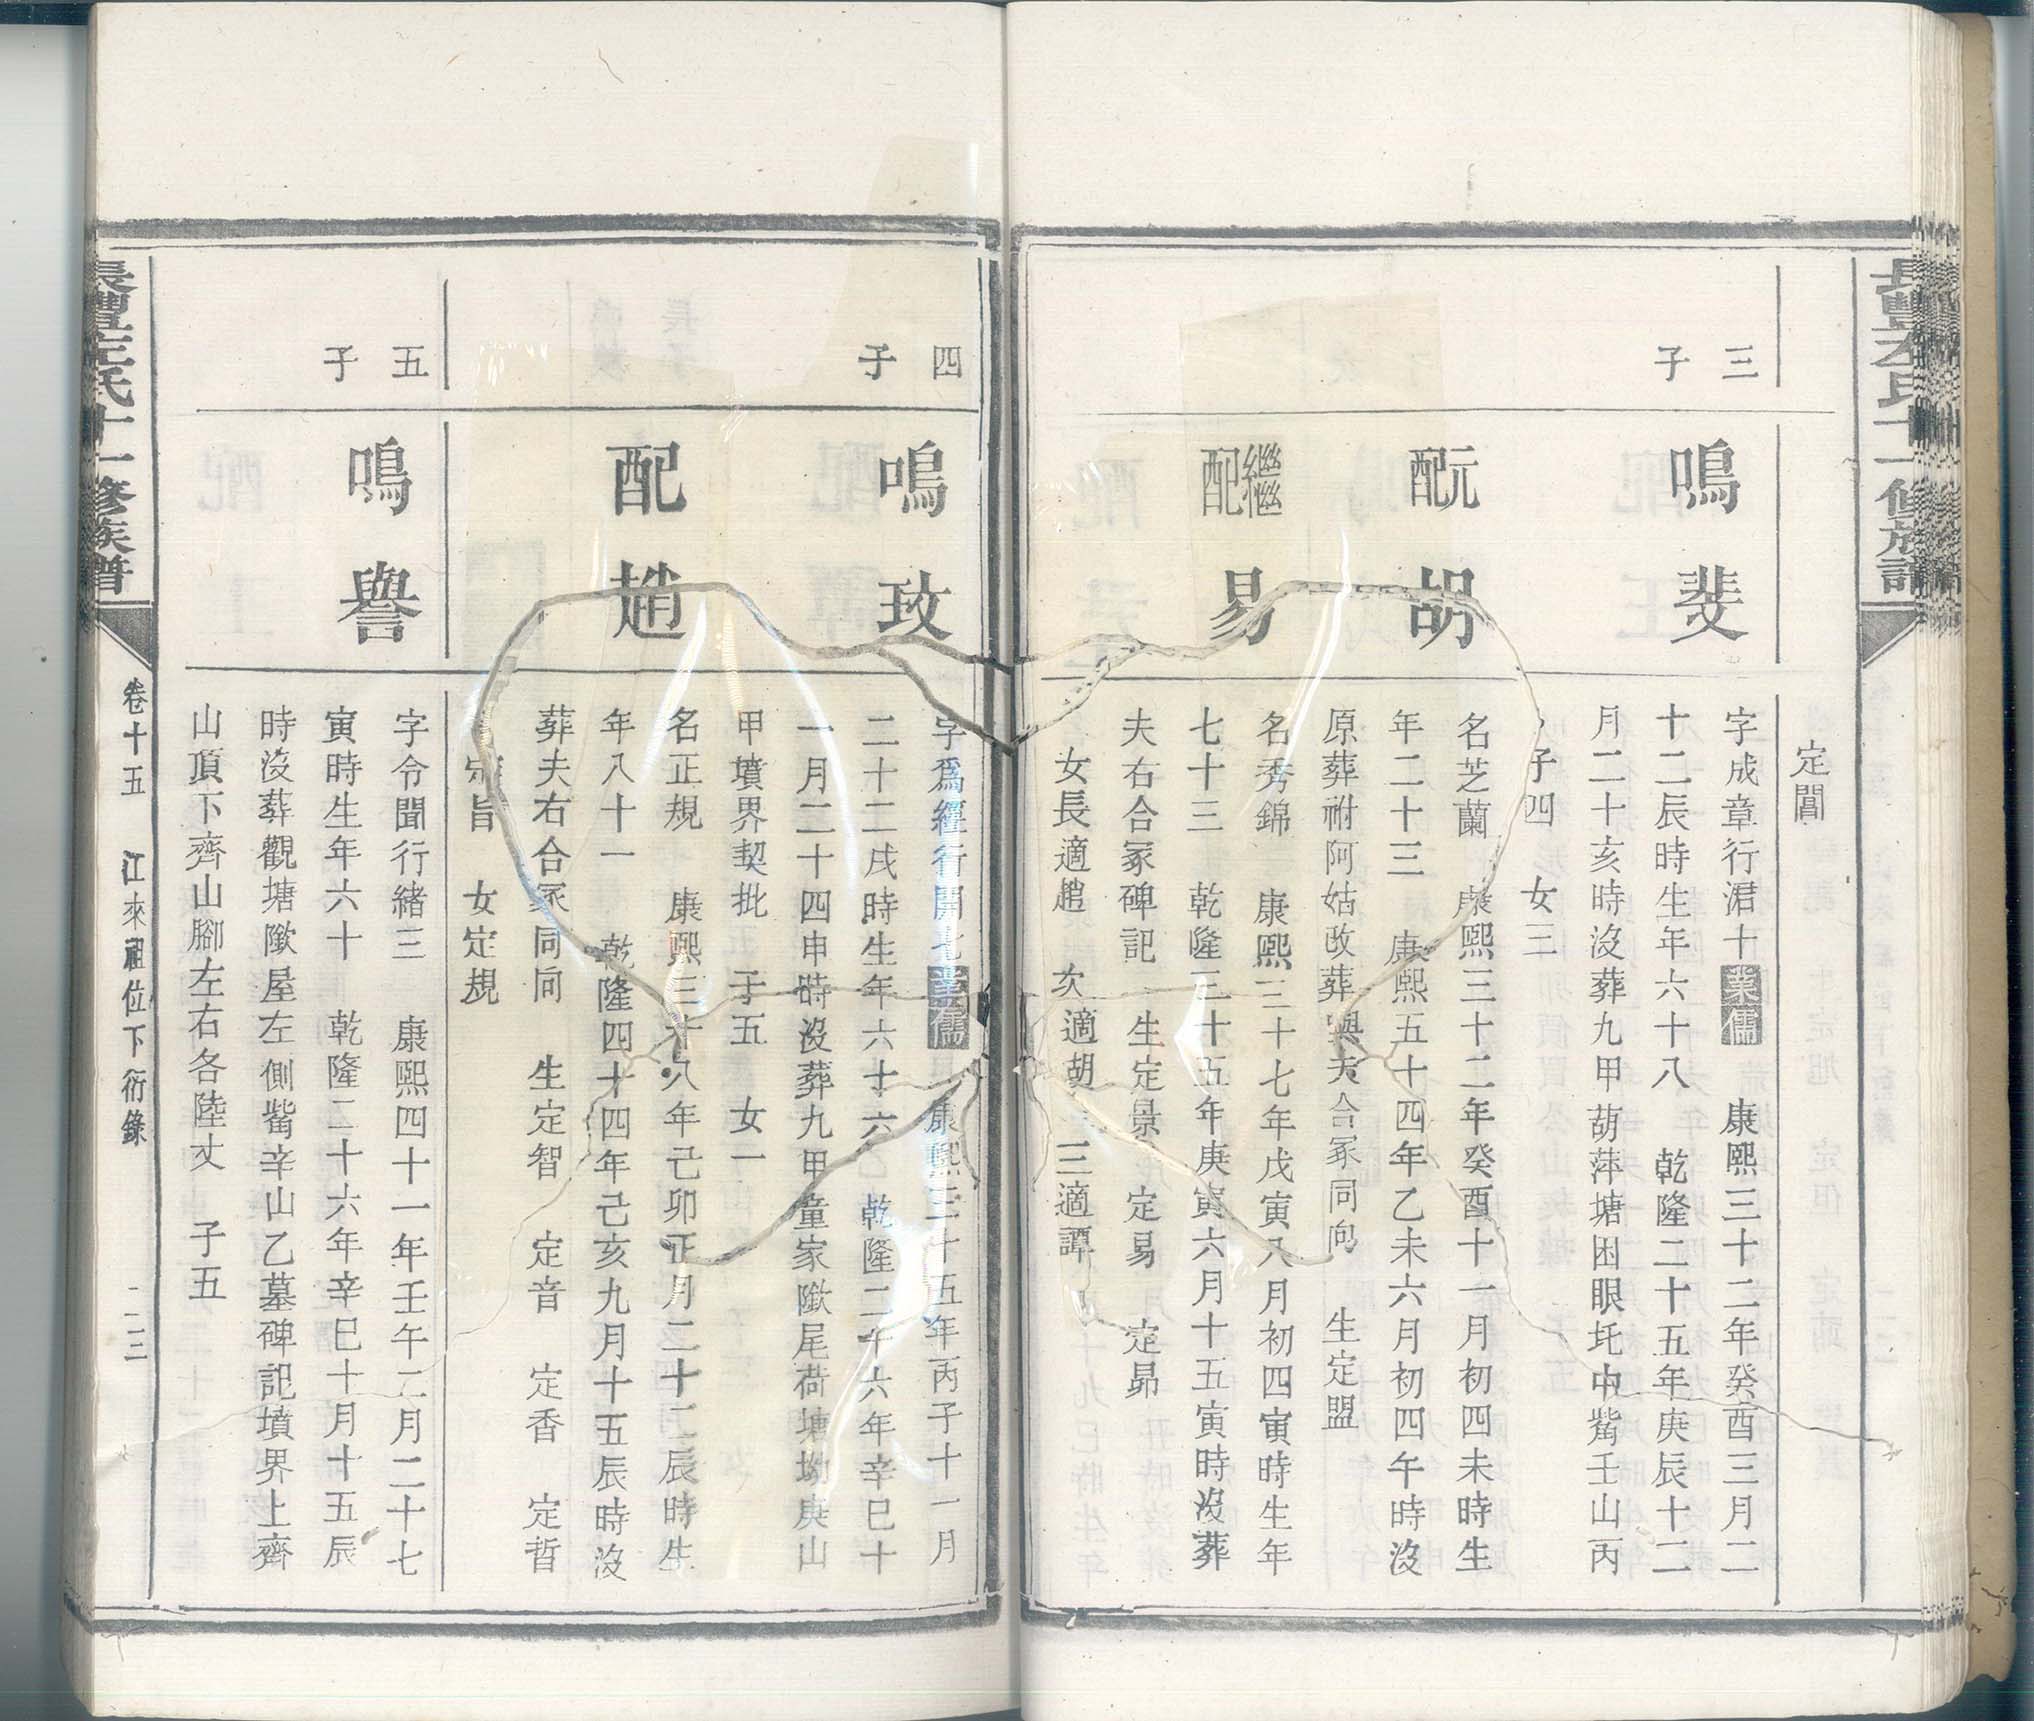 長豐左氏十一修族譜
定閶
三子
鳴斐
字成章行涒十業儒 康熙三十二年癸酉三月二
十二辰時生年六十八 乾隆二十五年庚辰十二
月二十亥時沒葬九甲葫萍塘困眼圫中嘴壬山丙
子四 女三
元配胡
名芝蘭 康熙三十二年癸酉十一月初四未時生
年二十三 康熙五十四年乙未六月初四午時沒
原葬祔阿姑改葬與夫合冢同向 生定盟
繼配易
名秀錦 康熙三十七年戊寅八月初四寅時生年
七十三 乾隆三十五年庚寅六月十五寅時沒葬
夫右合冢碑記 生定景 定易 定昴
女長適趙 次適胡 三適譚
四子
鳴玫
字為經行開七業儒 康熙三十五年丙子十一月
二十二戌時生年六十六 乾隆二十六年辛巳十
一月二十四申時沒葬九甲童家隞尾荷塘坳庚山
甲墳界契批 子五 女一
配趙
名正規 康熙三十八年己卯正月二十二辰時生
年八十一 乾隆四十四年己亥九月十五辰時沒
葬夫右合冢同向 生定智 定音 定香 定哲
定旨 女定規
五子
鳴譽
字令聞行緒三 康熙四十一年壬午二月二十七
寅時生年六十 乾隆二十六年辛巳十月十五辰
時沒葬觀塘隞屋左側嘴辛山乙墓碑記墳界上齊
山頂下齊山腳左右各陸丈 子五
長豐左氏十一修族譜
卷十五 江來祖位下衍錄 二三